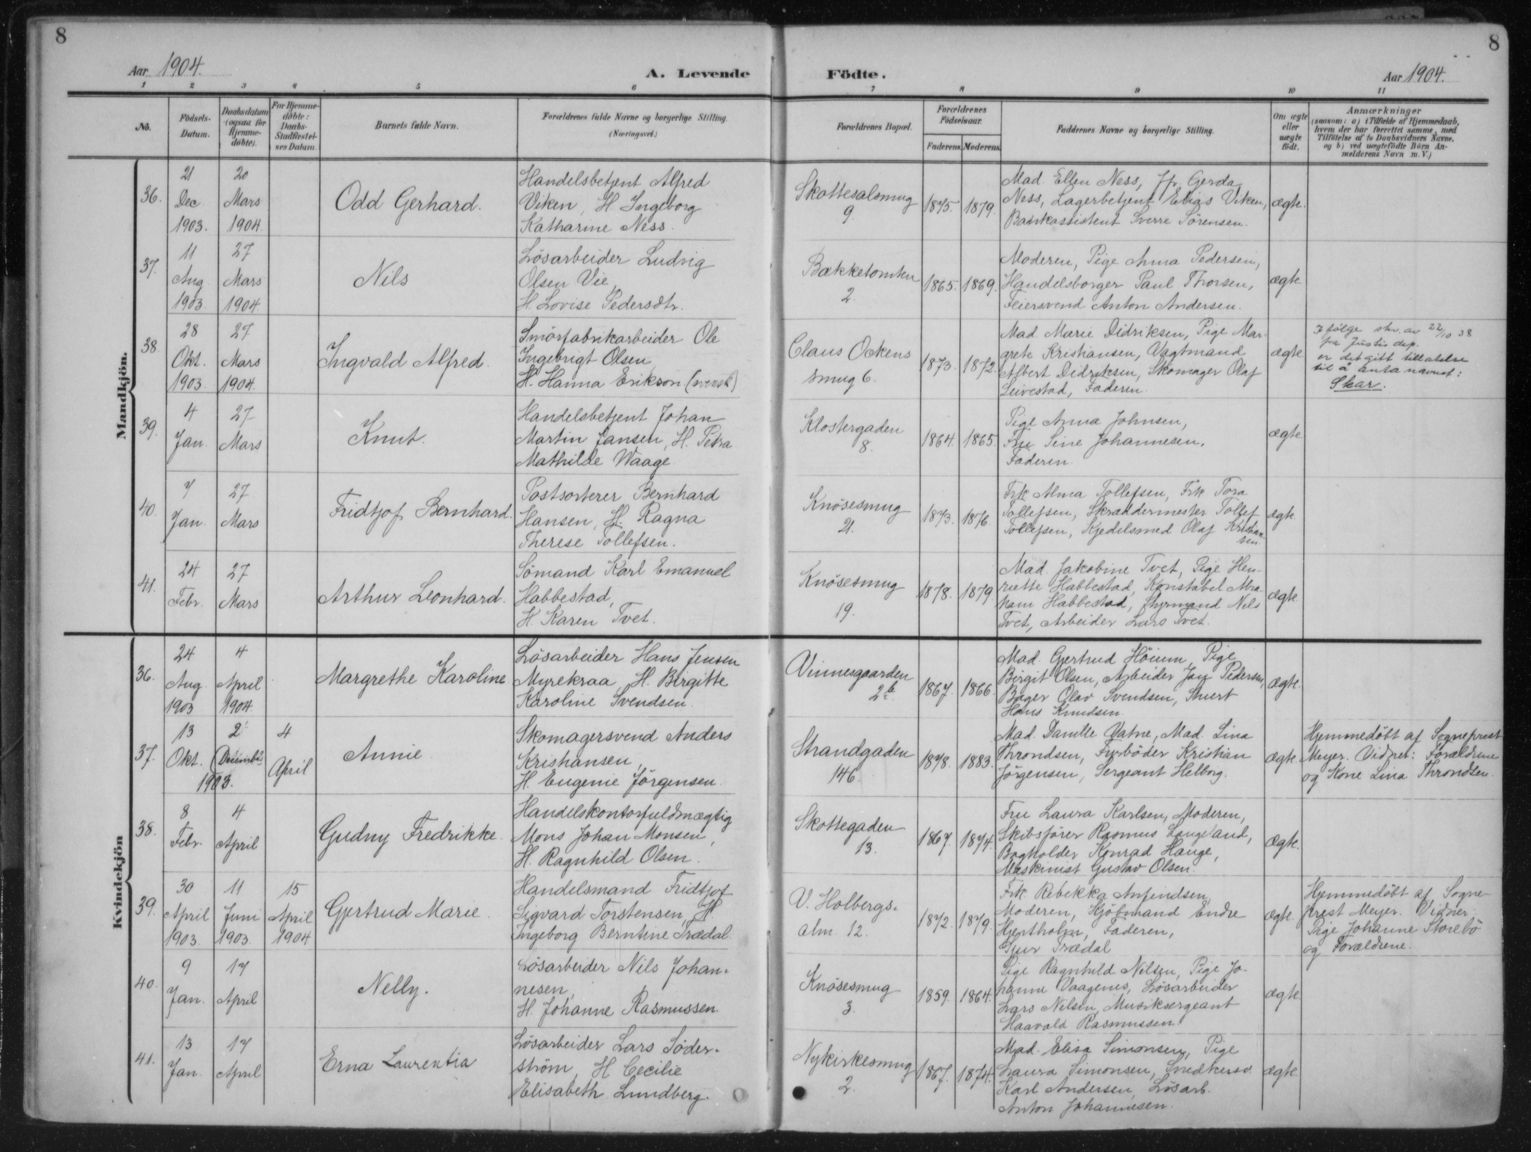 8
8
Aar 1904.
A. Levende
Födte.
Aar 1904.
1 2 3 4 5 6 7 8 9 10 11
No.
Födsels-
Datum.
Daabsdatum
(ogsaa for
Hjemme-
döbte).
For Hjemme-
döbte:
Daabs-
Stadfæstel-
ses Datum.
Barnets fulde Navn.
Forældrenes fulde Navne og borgerlige Stilling.
(Næringsvei.)
Forældrenes Bopæl.
Forældrenes
Födselsaar.
Faderens.
Moderens.
Faddernes Navne og borgerlige Stilling.
Om ægte
eller
uægte
födt.
Anmærkninger
(saasom: a) i Tilfælde af Hjemmedaab,
hvem der har forrettet samme, med
Tilföielse af to Daabsvidners Navne,
og b) ved uægtefödte Börn An-
melderens Navn m. V.)
Mandkjön.
36.
21
Dec
1903.
20
Mars
1904.
Odd Gerhard.
Handelsbetjent Alfred
Viken, H. Ingeborg
Katharine Ness.
Skottesalsmug
9
1875.
1879.
Mad Ellen Ness, Jfr Gerda
Ness, Lagerbetjent Elias Viken,
Bankassistent Sverre Sörensen.
ægte.
37.
11
Aug
1903
27
Mars
1904.
Nils
Lösarbeider Ludvig
Olsen Vie,
H. Lovise Pedersdtr.
Bækketomten
2.
1865.
1869.
Moderen, Pige Anna Pedersen,
Handelsborger Paul Thorsen,
Feiersvend Anton Andersen.
ægte
38.
28
Okt.
1903
27
Mars
1904.
Ingvald Alfred.
Smörfabrikarbeider Ole
Ingebrigt Olsen
H. Hanna Erikson (svensk)
Claus Ockens
smug 6.
1873.
1872.
Mad Marie Didriksen, Pige Mar-
grete Kristiansen, Vægtmand
Albert Didriksen, Skomager Olaf
Seivestad, Faderen.
ægte
Ifölge skr. av 22/10 38
fra Justis dep.
er det gitt tillatelse
til å anta navnet:
Skar.
39.
4
Jan.
27
Mars
Knut.
Handelsbetjent Johan
Martin Jansen, H. Petra
Mathilde Waage
Klostergaden
8.
1864.
1865.
Pige Anna Johnsen,
Fru Sine Johannesen,
Faderen.
ægte
40.
7
Jan.
27
Mars
Fridtjof Bernhard
Postsorterer Bernhard
Hansen, H. Ragna
Therese Tollefsen.
Knösesmug
21.
1873.
1876.
Frk Alma Tollefsen, Frk Tora
Tollefsen, Skræddermester Tollef
Tollefsen, Kjedelsmed Olaf Kristian
sen.
ægte
41.
24
Febr.
27
Mars
Arthur Leonhard.
Sömand Karl Emanuel
Habbestad,
H. Karen Tvet.
Knösesmug
19.
1878.
1879
Mad Jakobine Tvet, Pige Hen-
riette Habbestad, Konstabel
Habbestad, Styrmand Nils
Tvet, Arbeider Lars Tvet.
ægte
Kvindekjön
36.
24
Aug
1903
4
April
1904
Margrethe Karoline
Lösarbeider Hans Jensen
Myrekraa, H. Birgitte
Karoline Svendsen.
Vinnesgaarden
2 b
1867.
1866.
Mad. Gertrud Höium, Pige
Birgit Olsen, Arbeider Jens Pedersen,
Bager Olav Svendsen, Stuert
Hans Knudsen
ægte.
37.
13
Okt.
1903.
2
December
4
April
Annie.
Skomagersvend Anders
Kristiansen,
H. Eugenie Jörgensen.
Strandgaden
146.
1878.
1883.
Mad Vatne, Mad Lina
Throndsen, Fyrböder Kristian
Jörgensen, Sergeant Helling.
ægte
Hjemmedöbt af Sogneprest
Meyer. Vidner: Forældrene
og Kone Lina Throndsen.
38.
8
Febr.
4
April
Gudny Fredrikke.
Handelskontorfuldmægtig
Mons Johan Monsen,
H. Ragnhild Olsen.
Skottegaden
13.
1867.
1874.
Fru Laura Karlsen, Moderen,
Skibsförer Rasmus Langeland,
Bogholder Konrad Hauge,
Maskinist Gustav Olsen.
ægte.
39.
30
April
1903
11
Juni
1903.
15
April
1904
Gjertrud Marie.
Handelsmand Fridtjof
Sigvard Torstensen, H
Ingeborg Berntine Trædal
V. Holbergs-
alm. 12.
1872.
1879.
Frk. Rebekka Anfindsen,
Moderen, Kjöbmand Endre
Hjertholm, Faderen,
Sjur Trædal
ægte.
Hjemmedöbt af Sogne-
prest Meyer. Vidner:
Pige Johanne Storebö
og Forældrene.
40.
9
Jan.
17
April
Nelly.
Lösarbeider Nils Johan-
nesen,
H. Johanne Rasmussen
Knösesmug
3.
1859.
1864.
Pige Ragnhild Nilsen, Pige Jo-
hanne Vaagenes, Lösarbeider
Lars Nilsen, Musiksergeant
Haavald Rasmussen.
ægte
41.
13
Jan.
17
April
Erna Laurentia
Lösarbeider Lars Söder-
ström, H. Cecilie
Elisabeth Lundberg.
Nykirkesmug
2.
1867.
1874.
Mad. Elisa Simonsen, Pige
Laura Simonsen, Snedkersv.
Karl Andersen, Lösarb.
Anton Johannesen.
ægte